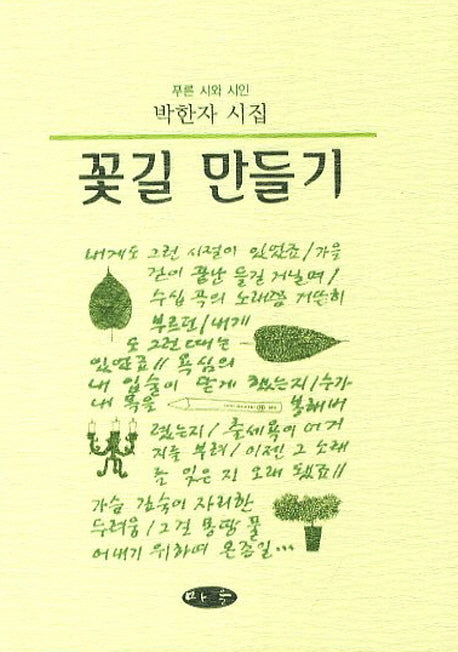 푸른 시와 시인
박한자 시집
꽃길 만들기
내게도 그런 시절이 있었죠/가을
걷이 끝난 들길 거닐며/
수십 곡의 노래쯤 거뜬히
부르던/내게
도 그런 때는
있었죠// 욕심의
내 입술이 닫게 했는지/누가
내 목을 봉해버
렸는지/ 출세욕이 어거
지를 부려/이젠 그 노래
를 잊은 지 오래 됐죠//
가슴 깊숙이 자리한
두려움/그걸 몽땅 풀
어내기 위하여 온종일...
마을